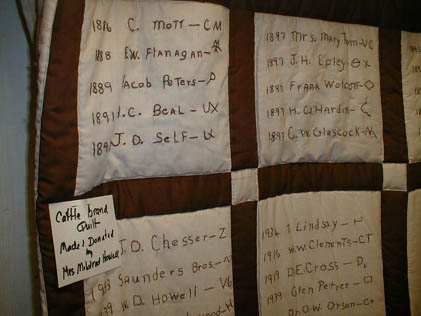 1886 C. Mott - CM
188 E.W. Flanagan -
1889 Jacob Peters - P
1891 I.C. Beal - UX
189 J. D. Self -
1897 Mrs. Mary Tom - VC
1897 J. H. Epley -
1897 Frank Wolcott -
1897 H. C. Hardin -
1897 C. W. Glascock -
Cattle brand
Quilt
Made & Donated
by
Mrs. Mildred
J. D. Chesser - Z
1913 Saunders Bros. -
1939 W. D. Howell -
1936 Lindsay -
1916 W.W. Clements - CT
1917 D.E. Cross - D.
1939 Glen Petree -
Dr. O. W. Orson -